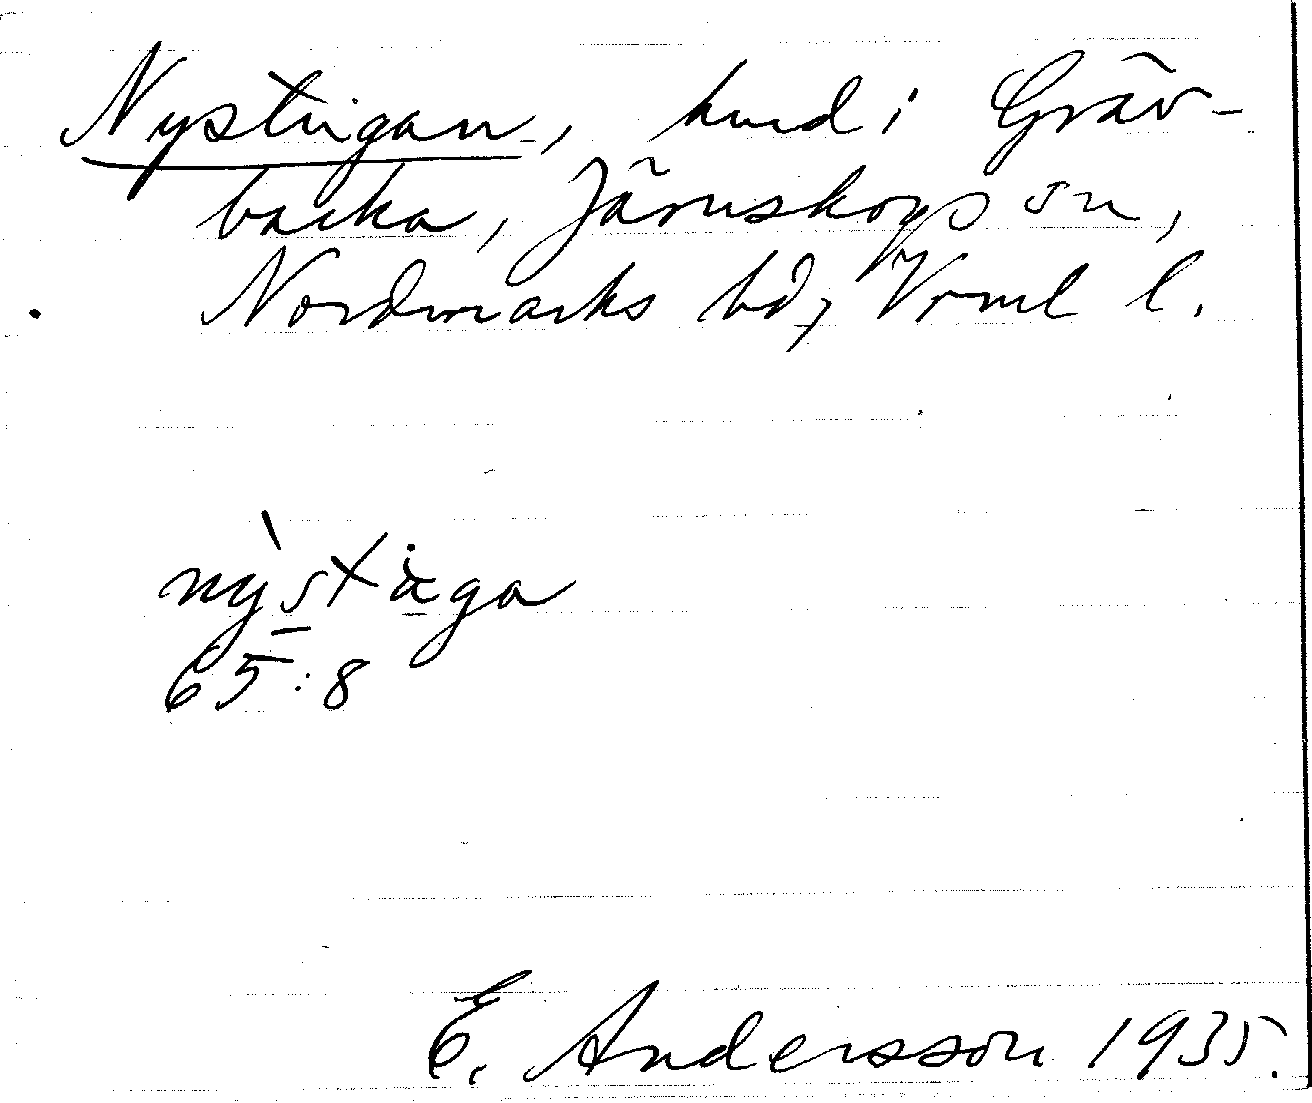 Nystugan, hmd i Gräv-
backa, Järnskogs sn,
Nordmarks hd, Vrml l.
nỳstȧga
65:8
E. Andersson 1935.